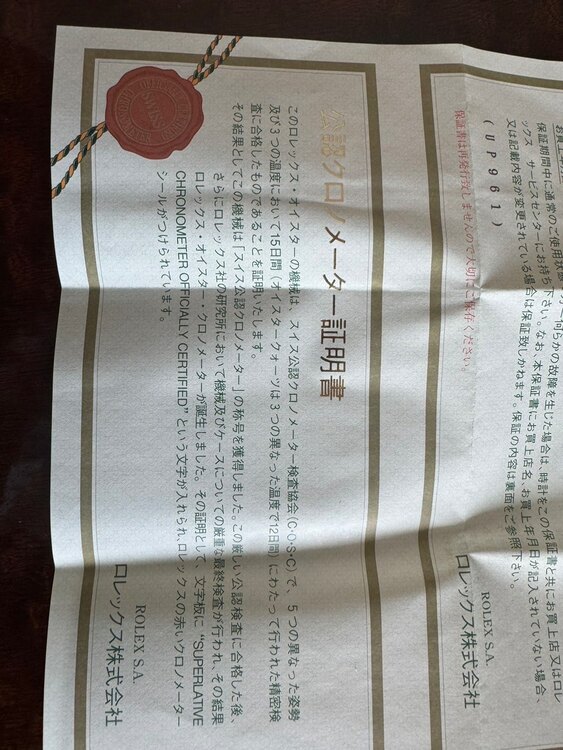 保証期間中に通常のご使用状態で万一何らかの故障を生じた場合は、時計をこの保証書と共にお買上店又はロレ
ックス サービスセンターにお持ち下さい。なお、本保証書にお買上店名、お買上年月日が記入されていない場合、
又は記載内容が変更されている場合は保証致しかねます。保証の内容は裏面をご参照下さい。
(UP961)
ROLEX S.A.
ロレックス株式会社
保証書は再発行致しませんので大切にご保存ください。
公認クロノメーター証明書
このロレックス・オイスターの機械は、スイス公認クロノメーター検査協会(C・O・S・C)で、5つの異なった姿勢
及び3つの温度において15日間(オイスタークォーツは3つの異なった温度で12日間)にわたって行われた精密検
査に合格したものであることを証明いたします。
その結果としてこの機械は「スイス公認クロノメーター」の称号を獲得しました。この厳しい公認検査に合格した後、
さらにロレックス社の研究所において機械及びケースについての厳重な最終検査が行われ、その結果
ロレックス・オイスター・クロノメーターが誕生しました。その証明として、文字板に“SUPERLATIVE
CHRONOMETER OFFICIALLY CERTIFIED”という文字が入れられ、ロレックスの赤いクロノメーター
シールがつけられています。
ROLEX S.A.
ロレックス株式会社